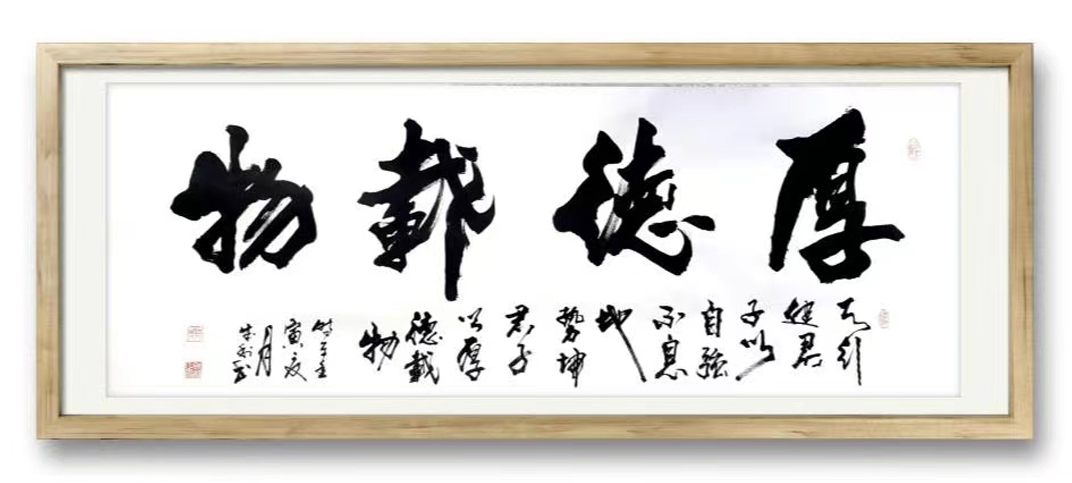 厚德载物
天行
健君
子以
自强
不息
地
势坤
君子
以厚
德载
物
时壬
寅夏
月